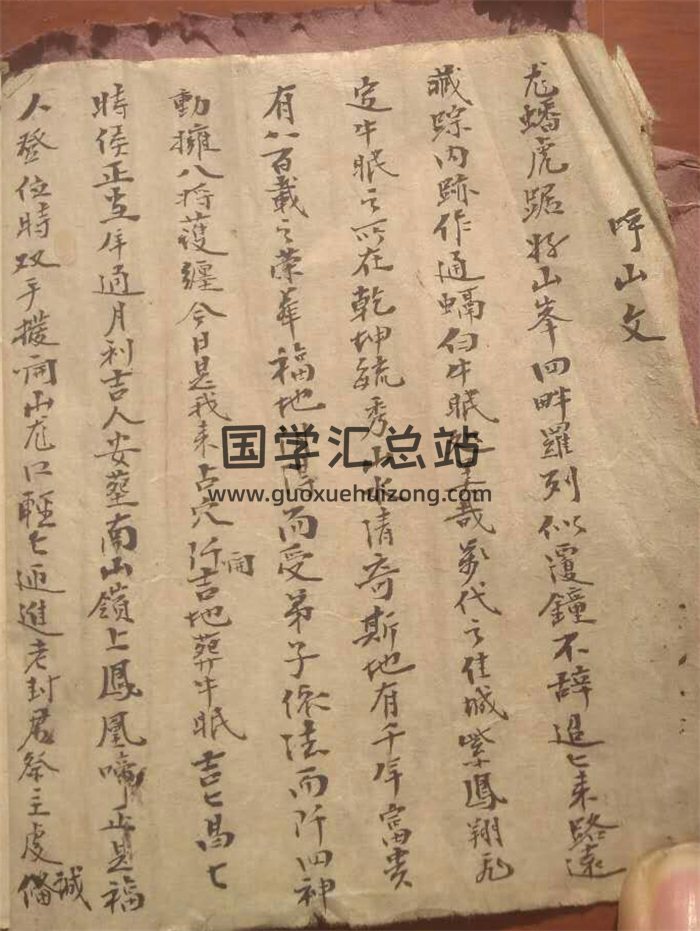 呼山文
龙蟠虎踞好山峯四畔羅列似覆鐘不辞迢〻来路遠
藏踪内跡作通蝠向牛眠哉萬代之佳城紫鳳翔飛
定牛眠之所在乾坤毓秀山水清奇斯地有千年富貴
有八百載之荣華福地而受弟子依法而阡四神
動擁八將護纏今日是我来占穴阡開吉地葬牛眠吉〻昌〻
時侯正直年通月利吉人安塟南山嶺上鳳凰啼正是福
人登位時双手撥開山龙口輕〻迎進老封君祭主虔誠俻
国学汇总站
www.guoxuehuizong.com